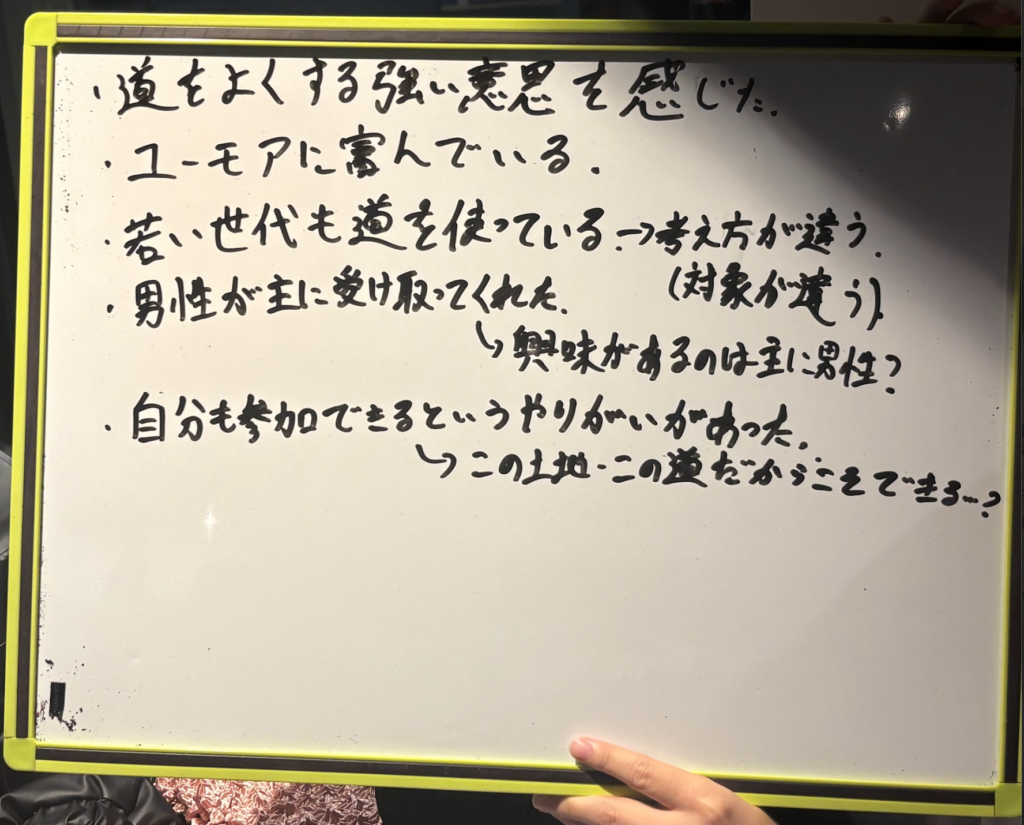 ・道をよくする強い意思を感じた.
・ユーモアに富んでいる.
・若い世代も道を使っている.→考え方が違う.
(対象が違う).
・男性が主に受け取ってくれた.
↳興味があるのは主に男性?
・自分も参加できるというやりがいがあった.
↳この土地・この道だからこそできる…?